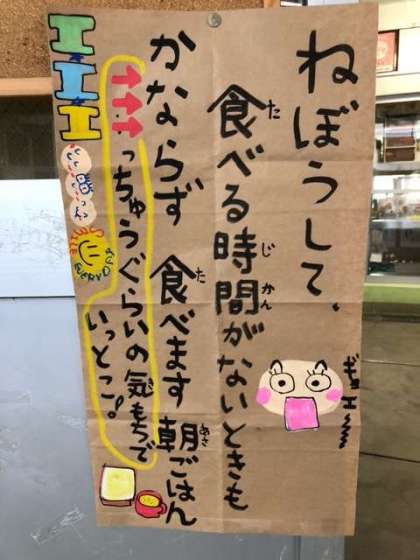 ねぼうして、
食べる時間がないときも
かならず食べます朝ごはん
っちゅうぐらいの気もちで
いっとこ。
ギョエ〜〜
エエエ
SMILE EVERYDAY